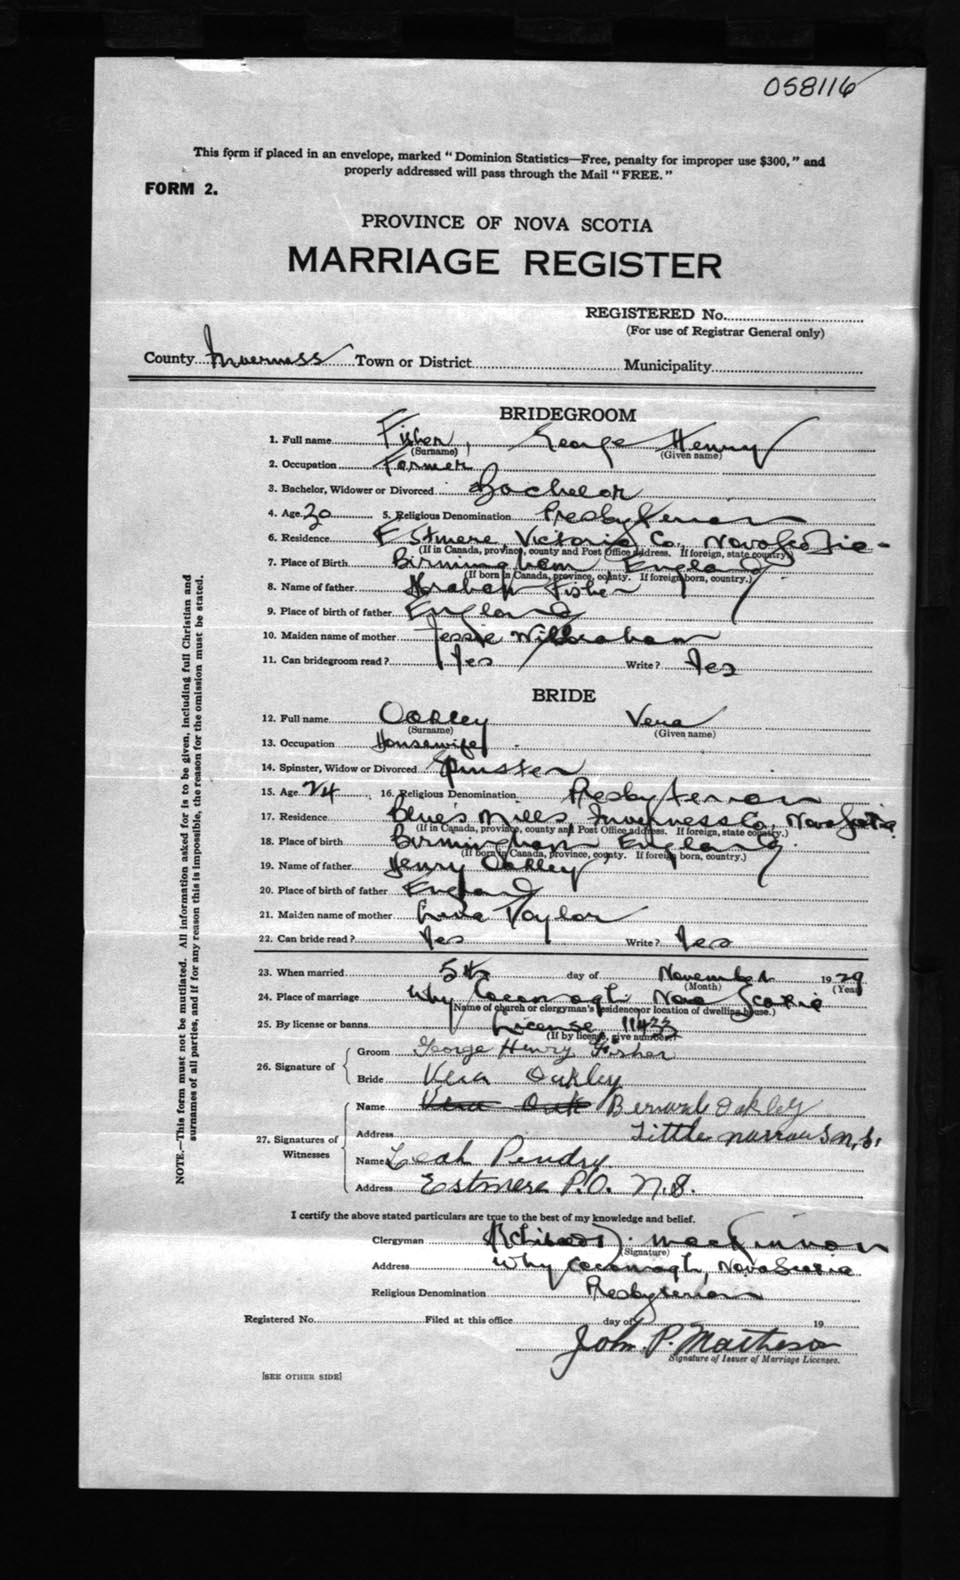 058116
This form if placed in an envelope, marked "Dominion Statistics—Free, penalty for improper use $300," and
properly addressed will pass through the Mail "FREE."
FORM 2.
PROVINCE OF NOVA SCOTIA
MARRIAGE REGISTER
REGISTERED No.
(For use of Registrar General only)
County Inverness Town or District Municipality
BRIDEGROOM
1. Full name Fisher, George Henry
(Surname) (Given name)
2. Occupation Farmer
3. Bachelor, Widower or Divorced Bachelor
4. Age 30 5. Religious Denomination Presbyterian
6. Residence Estmere, Victoria Co., Nova Scotia
(If in Canada, province, county and Post Office address. If foreign, state country.)
7. Place of Birth Birmingham England
(If born in Canada, province, county. If foreign born, country.)
8. Name of father Fisher
9. Place of birth of father England
10. Maiden name of mother Jessie Wilbraham
11. Can bridegroom read? Yes Write? Yes
BRIDE
12. Full name Oakley Vera
(Surname) (Given name)
13. Occupation Housewife
14. Spinster, Widow or Divorced Spinster
15. Age 24 16. Religious Denomination Presbyterian
17. Residence Blue's Mills, Inverness Co., Nova Scotia
(If in Canada, province, county and Post Office address. If foreign, state country.)
18. Place of birth Birmingham England
(If born in Canada, province, county. If foreign born, country.)
19. Name of father Henry Oakley
20. Place of birth of father England
21. Maiden name of mother Taylor
22. Can bride read? Yes Write? Yes
23. When married 5th day of November 1929
(Month) (Year)
24. Place of marriage Whycocomagh Nova Scotia
(Name of church or clergyman's residence or location of dwelling house.)
25. By license or banns License 11433
(If by license, give number.)
26. Signature of Groom George Henry Fisher
Bride Vera Oakley
27. Signatures of Witnesses Name Vera Oak Bernard Oakley
Address Little Narrows N.S.
Name Leah Pendry
Address Estmere P.O. N.S.
I certify the above stated particulars are true to the best of my knowledge and belief.
Clergyman Archibald D. MacKinnon
(Signature)
Address Whycocomagh, Nova Scotia
Religious Denomination Presbyterian
Registered No. Filed at this office day of 19
John P. Matheson
Signature of Issuer of Marriage Licenses.
[SEE OTHER SIDE]
NOTE.—This form must not be mutilated. All information asked for is to be given, including full Christian and
surnames of all parties, and if for any reason this is impossible, the reason for the omission must be stated.